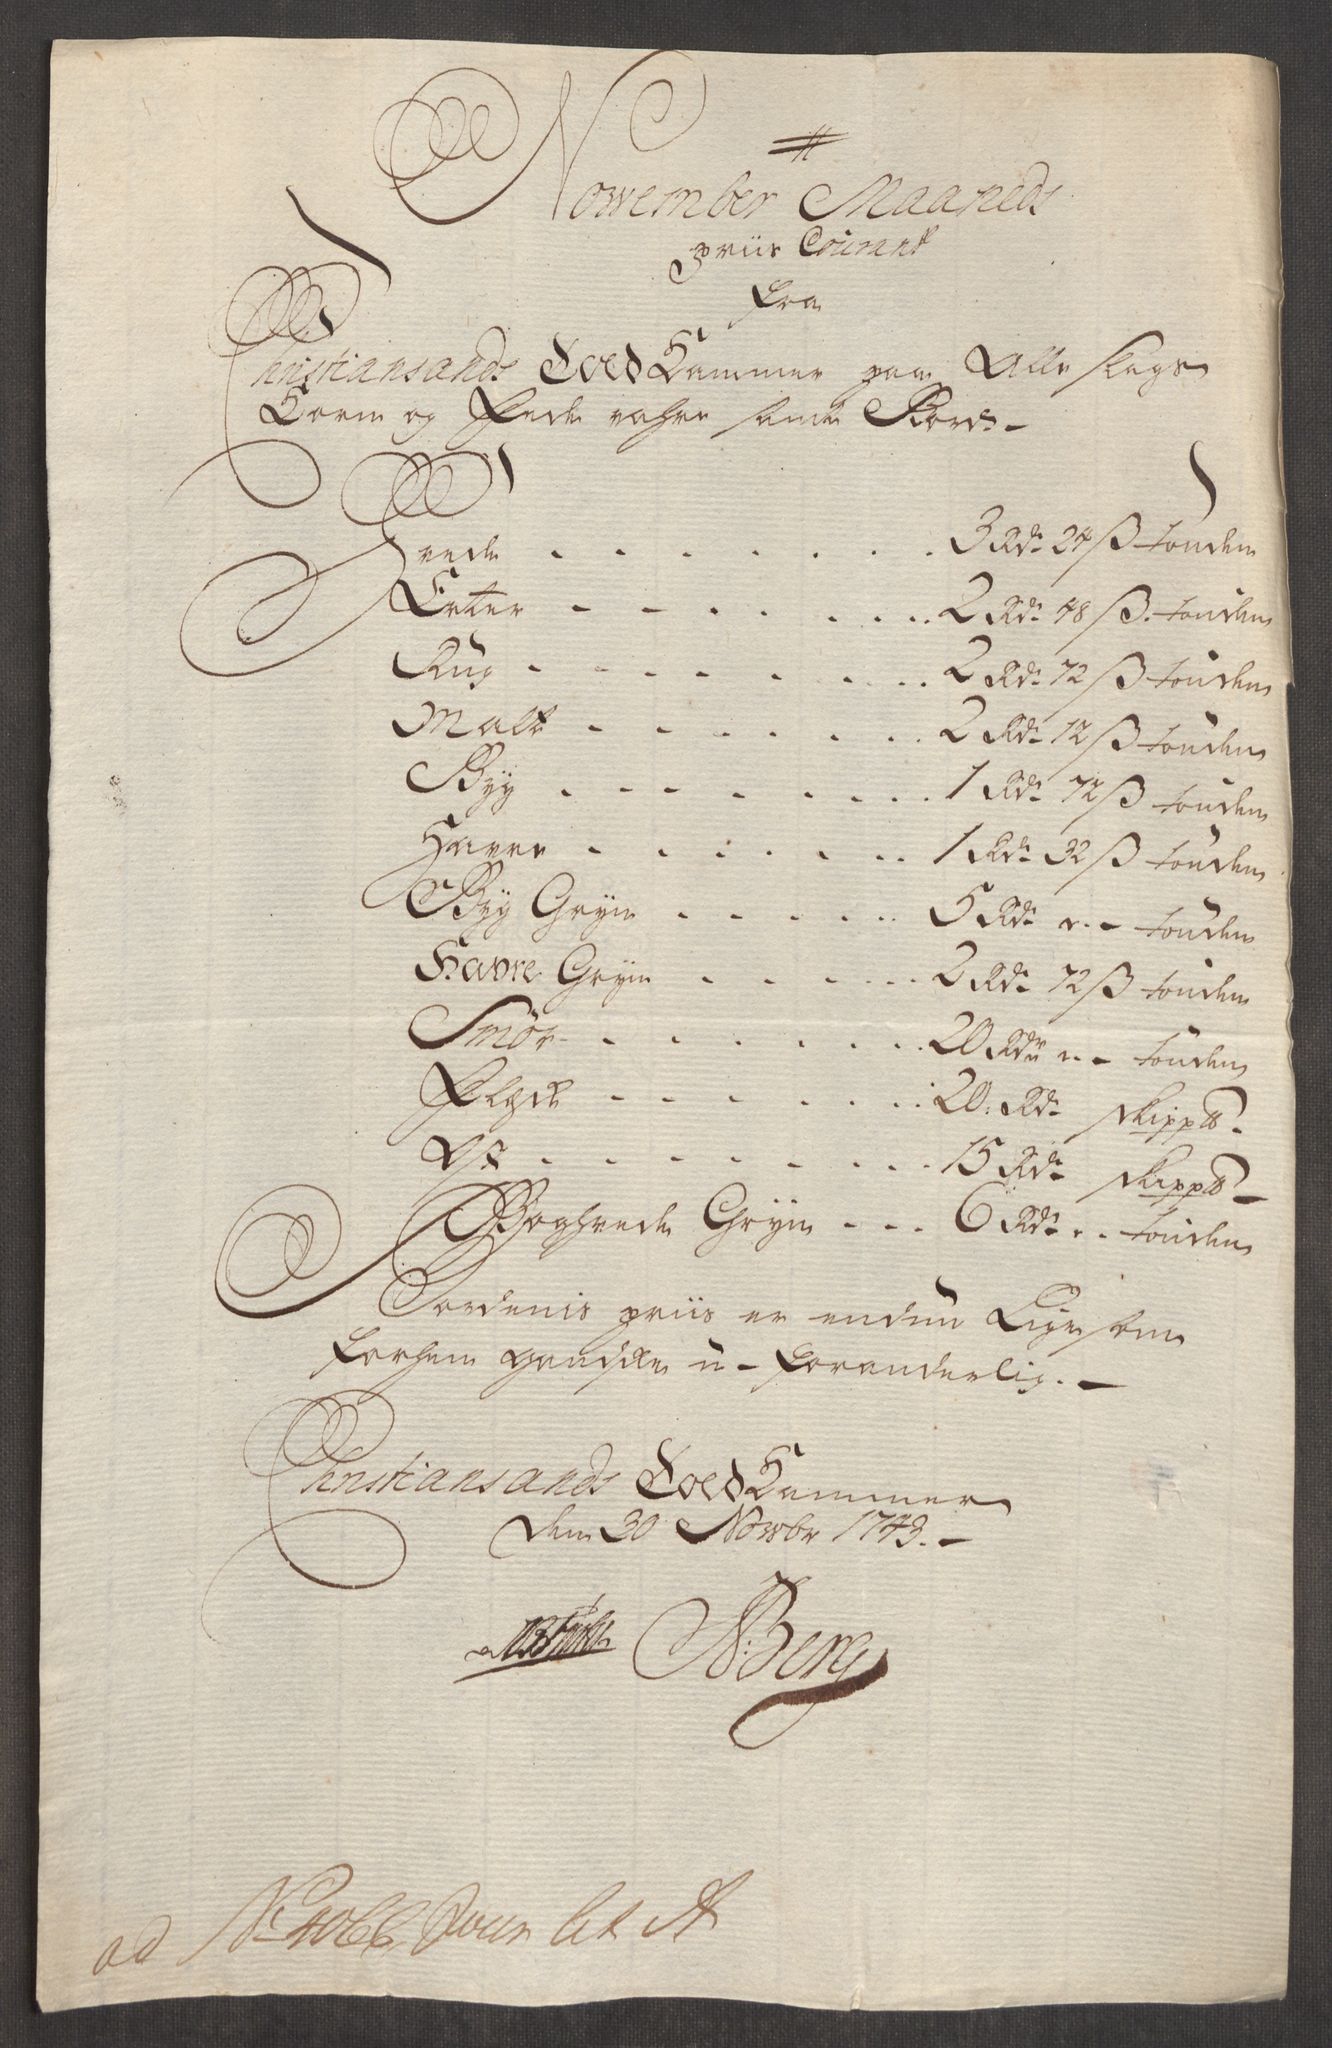 Nowember Maaneds
priis Courant
fra
Christiansands Toldkammer paa Alle slags
Korn og Fede vahre samt Bord. -
Hvede . . . . . . . 3 Rdr 24 ß tønden
Erter - - . . . . . 2 Rdr 48 ß. tønden
Rug . - . . . . . 2 Rdr 72 ß tønden
Malt - . . . . . . 2 Rdr 12 ß tønden
Byg . - - - . . . 1 Rdr 72 ß tønden
Havre . . . . . . . 1 Rdr 32 ß tønden
Byg Gryn . . . . . 5 Rdr " - tønden
Havre Gryn . . . . . 2 Rdr 72 ß tønden
Smør . . . . . . . 20 Rdr " - tønden
Flesk - - - . . . . 20. Rdr skippd.
Ost . . . . . . . 15 Rdr skippd -
Boghvede Gryn - - . 6 Rdr " . tønden
Bordenis priis er endnu Ligesom
forhen gandske u-foranderlig. -
Christiansands Toldkammer
den 30 Nowbr 1743. -
N: Berg
ad No 4066 Lit A